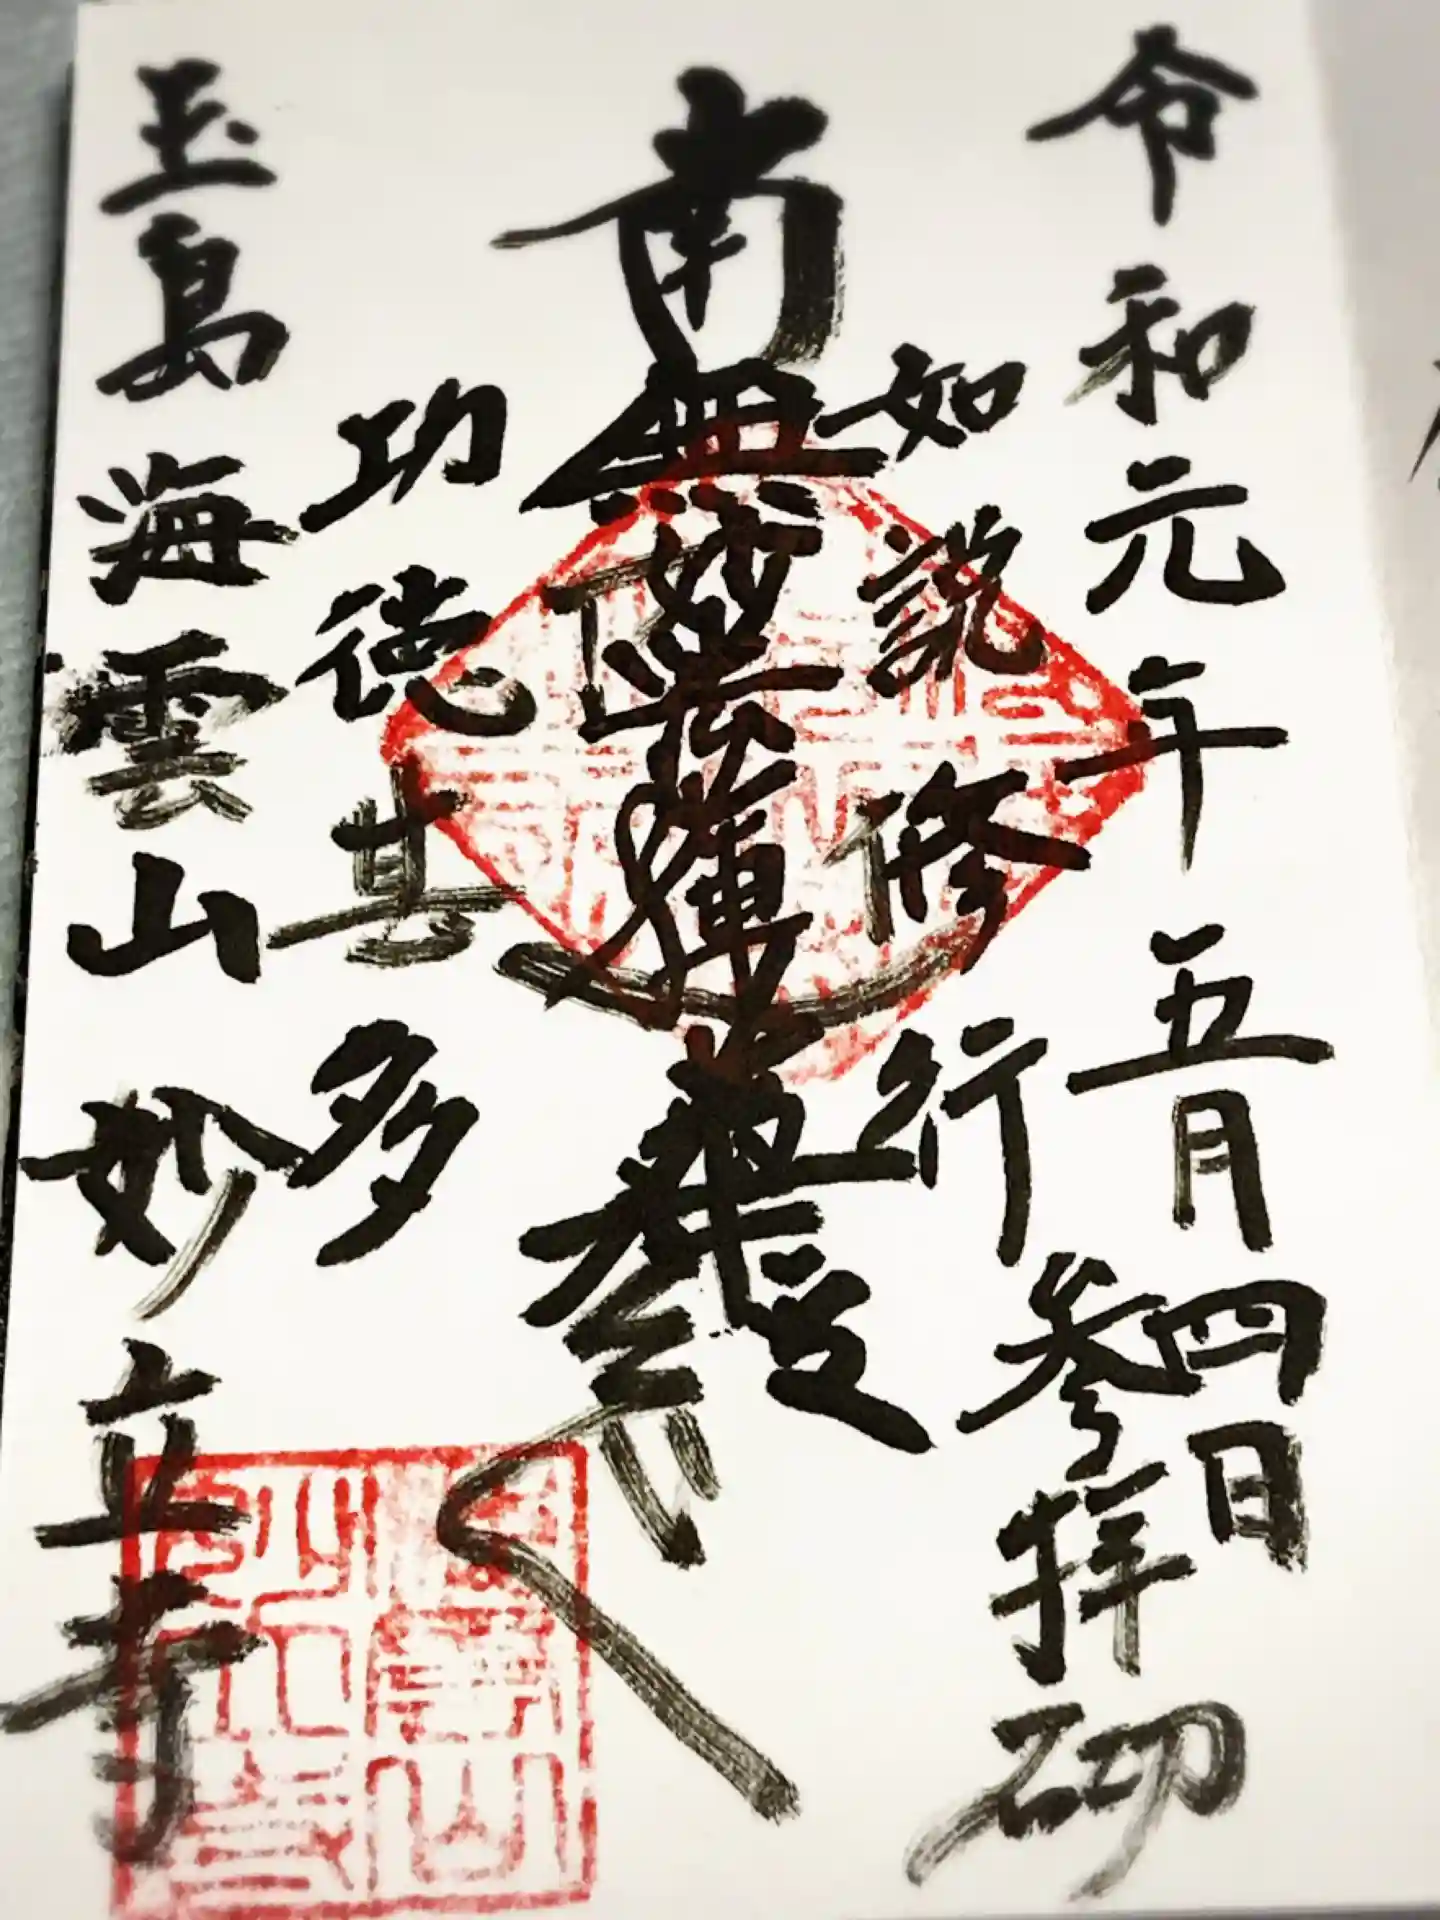 令和元年 五月四日
参拝砌
如説修行
南無妙法蓮華經
功徳甚多
玉島 海雲山 妙立寺
海雲山
妙立寺